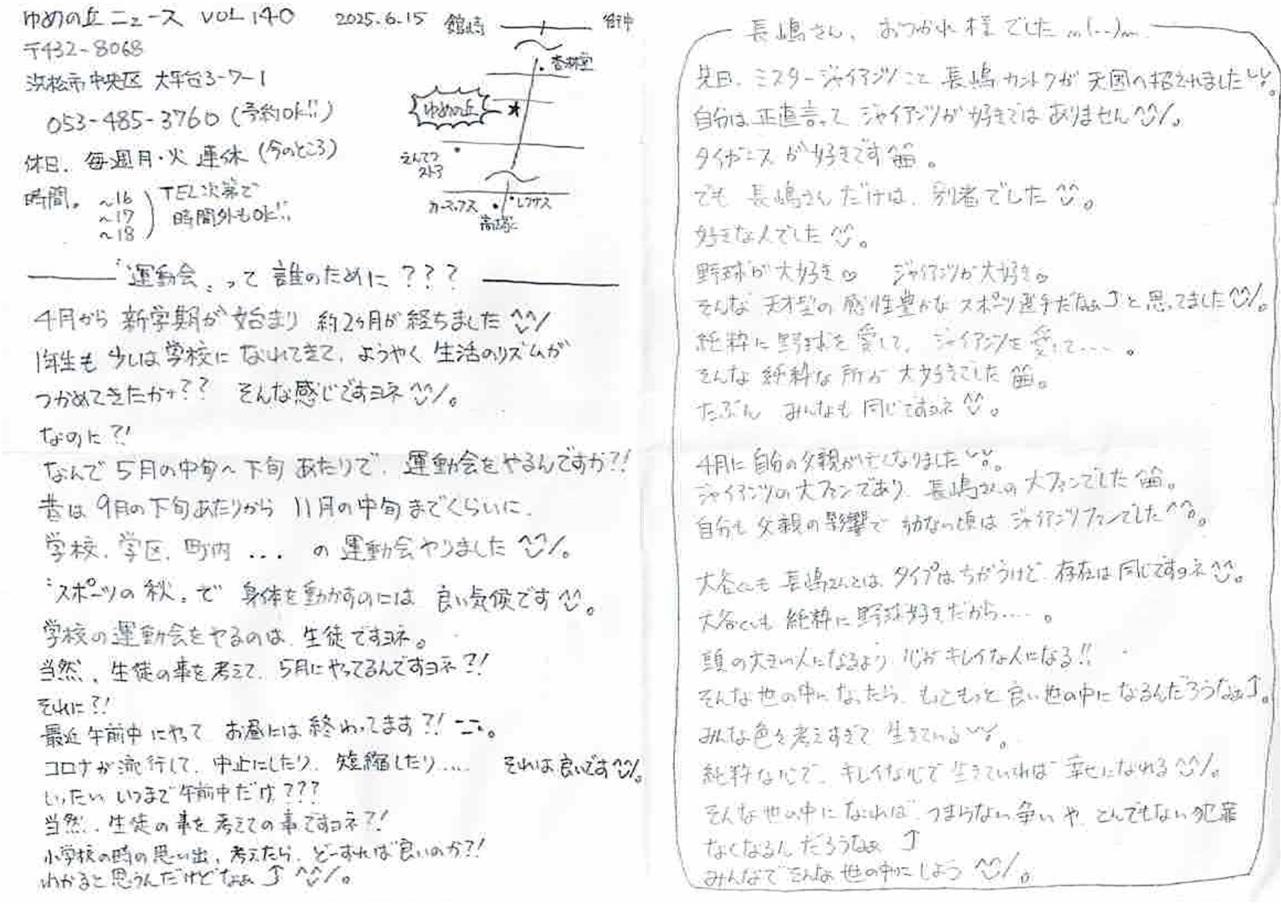 ゆめの丘ニュース VOL 140 2025.6.15
〒432-8068
浜松市中央区 大平台3-7-1
053-485-3760 (予約OK!!)
休日. 毎週月・火 連休 (今のところ)
時間。 ~16
~17
~18
TEL次第で
時間外もOK!!
舘山寺
杏林堂
ゆめの丘
えんてつ
ストア
カーマックス
レクサス
高塚に
「運動会」って 誰のために???
4月から 新学期が 始まり 約2ヶ月が 経ちました^^/
1年生も 少しは 学校に なれてきて、ようやく 生活のリズムが
つかめてきたかナ?? そんな感じですヨネ^^/。
なのに?!
なんで 5月の中旬~下旬 あたりで、運動会をやるんですか?!
昔は 9月の下旬あたりから 11月の中旬までくらいに、
学校、学区、町内 ... の 運動会やりました^^/。
"スポーツの秋"で 身体を動かすのには 良い気候です^^。
学校の運動会をやるのは、生徒ですヨネ。
当然、生徒の事を考えて、5月にやってるんですヨネ?!
それに?!
最近 午前中にやって お昼には 終わってます?! ーー。
コロナが流行して、中止にしたり、短縮したり.... それは良いです^^/。
いったい いつまで 午前中だけ???
当然、生徒の事を考えての事ですヨネ?!
小学校の時の思い出、考えたら、どーすれば良いのか?!
わかると思うんだけどなぁ ↑ ^^/。
長嶋さん、おつかれ様でした m(--)m
先日、ミスタージャイアンツこと 長嶋カントクが 天国へ招されました。
自分は 正直言って ジャイアンツが 好きでは ありません^^/。
タイガースが 好きです笛。
でも 長嶋さんだけは、別者でした^^。
好きな人でした^^。
野球が大好き♡ ジャイアンツが大好き♡
そんな 天才型の 感性豊かな スポーツ選手だなぁ↑と思ってました^^/。
純粋に野球を愛して、ジャイアンツを愛して....。
そんな 純粋な所が 大好きでした 笛。
たぶん みんなも 同じですヨネ^^。
4月に自分の父親が亡くなりました。
ジャイアンツの大ファンであり、長嶋さんの大ファンでした 笛。
自分も 父親の影響で 幼ない頃は ジャイアンツファンでした^^。
大谷くんも 長嶋さんとは、タイプはちがうけど、存在は同じですヨネ^^。
大谷くんも 純粋に野球好きだから....。
頭の大きい人になるよう、心が キレイな人になる!!
そんな世の中になったら、もっともっと良い世の中になるんだろうなぁ↑。
みんな色々考えすぎて 生きている。
純粋な心で、キレイな心で生きていれば 幸せになれる^^/。
そんな世の中になれば、つまらない争いや、とんでもない犯罪
なくなるんだろうなぁ ↑
みんなで そんな世の中に しよう^^/。